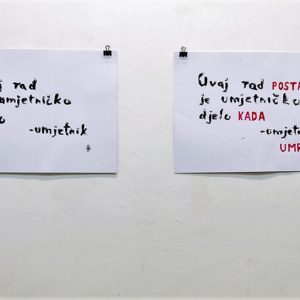 j rad
umjetničko
o
-umjetnik
Ovaj rad POSTA
je umjetničko
djelo KADA
-umjetn
UMR